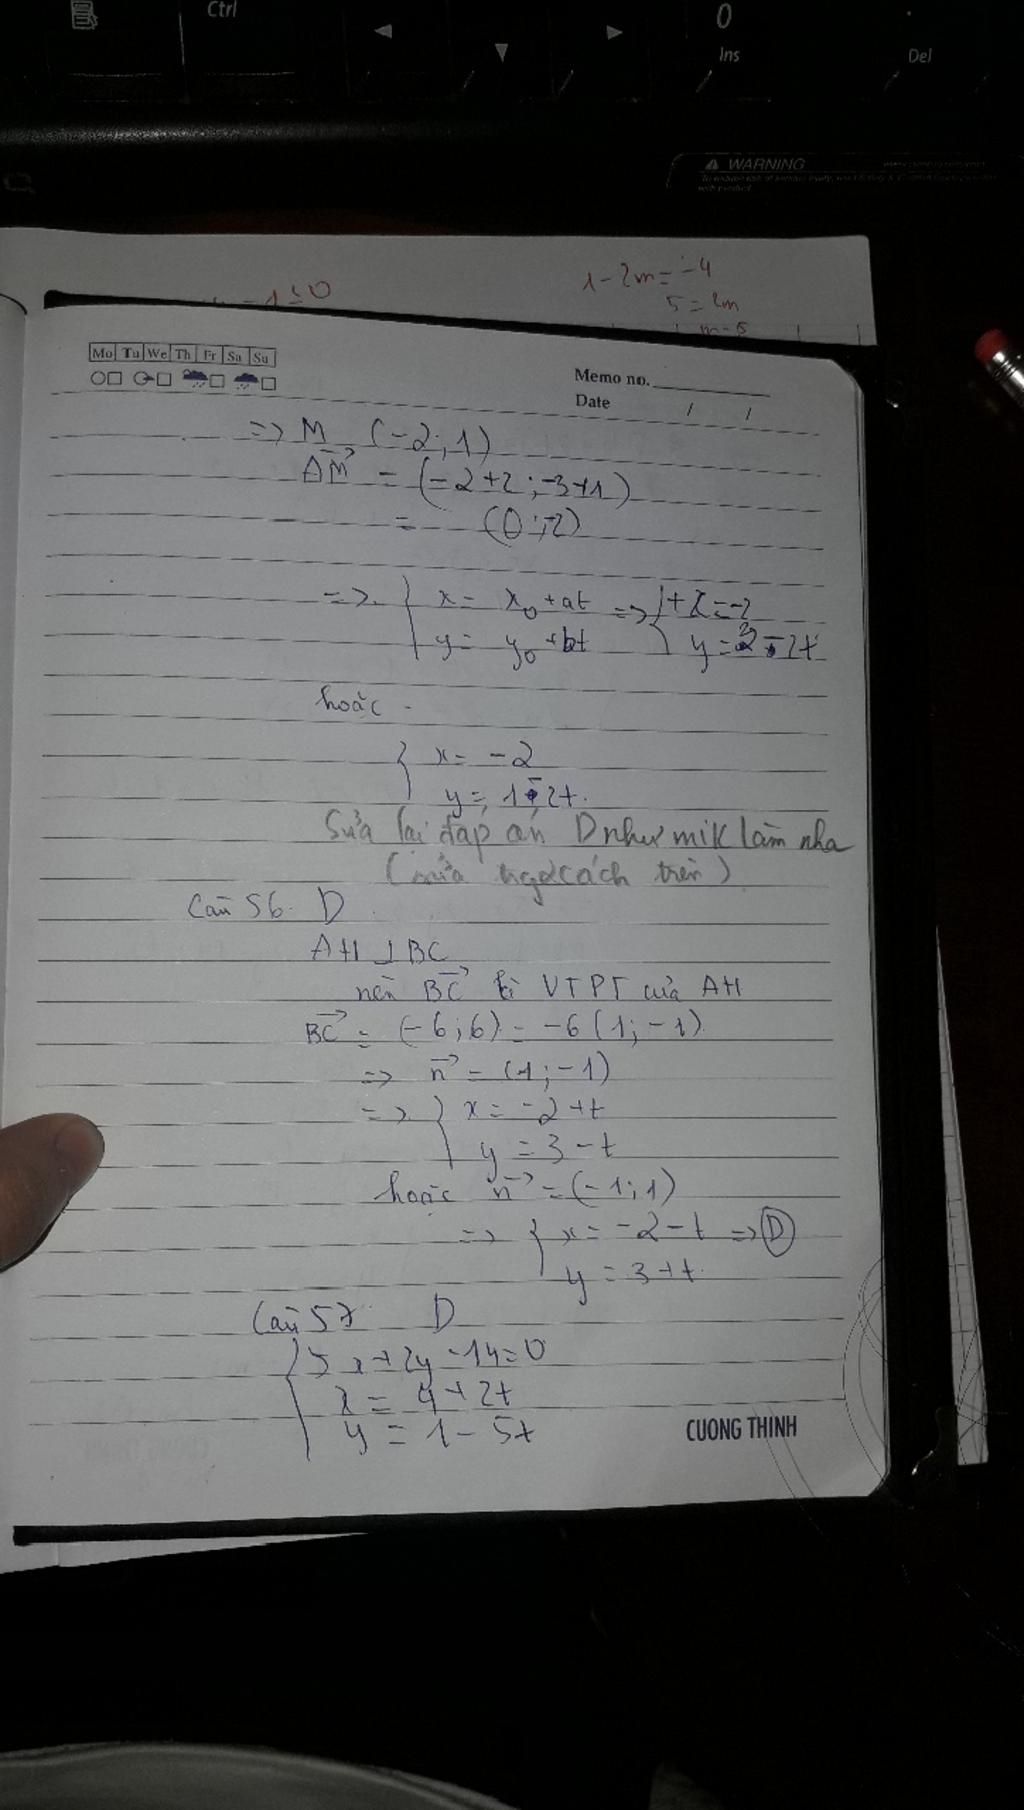 Ctrl
0
Ins
Del
WARNING
1 - 2m = -4
5 = 2m
Mo Tu We Th Fr Sa Su
Memo no.
Date / /
=> M (-2; 1)
AM→ = (-2+2; -3+1)
= (0; -2)
=> { x = x₀ + at => { x = -2
y = y₀ + bt y = 3 - 2t
hoặc
{ x = -2
y = 1 - 2t.
Sửa lại đáp án D như mik làm nha
Câu 56. D
AH ⊥ BC
nên BC→ là VTPT của AH
BC→ = (-6; 6) = -6(1; -1)
=> n→ = (1; -1)
=> { x = -2 + t
y = 3 - t
hoặc n→ = (-1; 1)
=> { x = -2 - t => D
y = 3 + t
Câu 57 D
{ 5x + 2y - 14 = 0
x = 4 + 2t
y = 1 - 5t
CUONG THINH